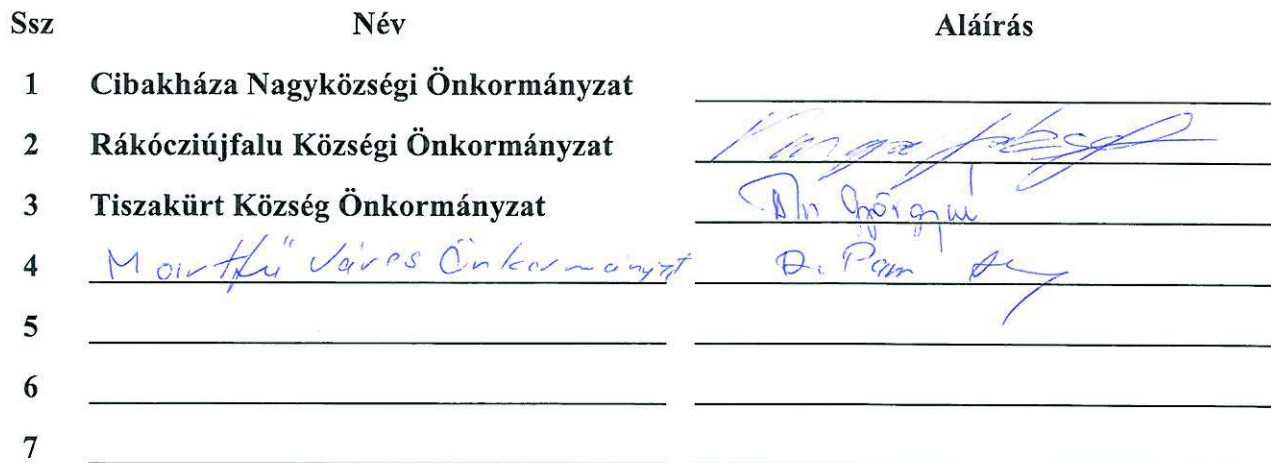 Ssz Név Aláírás
1 Cibakháza Nagyközségi Önkormányzat
2 Rákócziújfalu Községi Önkormányzat
3 Tiszakürt Község Önkormányzat
4 Martfű Város Önkormányzat
5
6
7